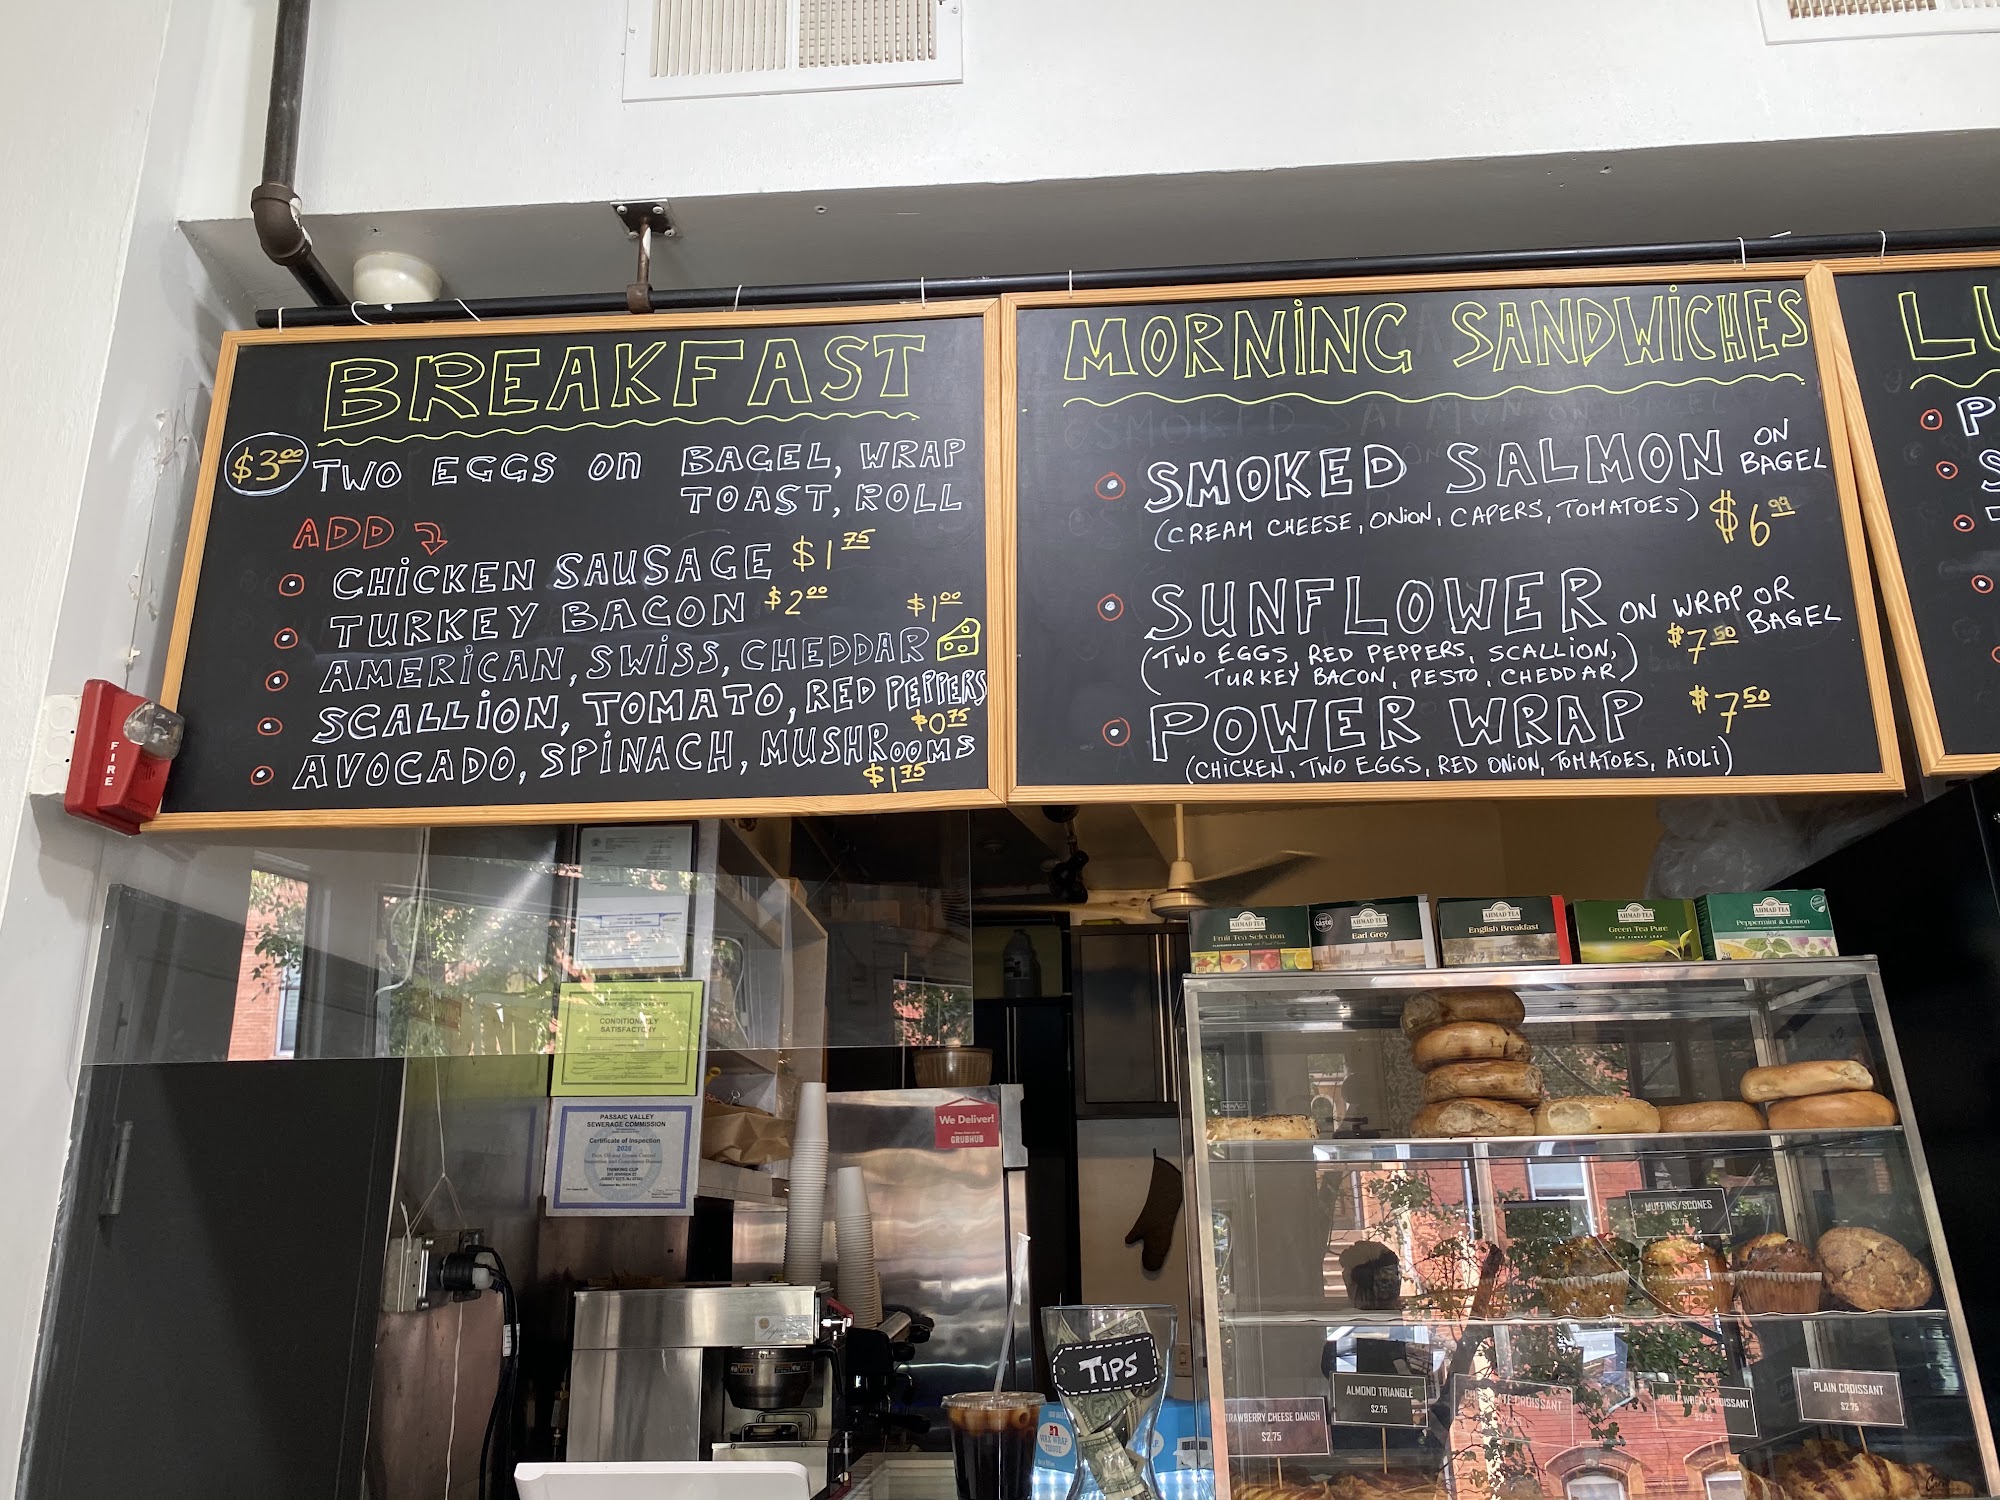 BREAKFAST
$3.00 TWO EGGS ON BAGEL, WRAP
TOAST, ROLL
ADD
CHICKEN SAUSAGE $1.75
TURKEY BACON $2.00
$1.00
AMERICAN, SWISS, CHEDDAR
SCALLION, TOMATO, RED PEPPERS
$0.75
AVOCADO, SPINACH, MUSHROOMS
$1.75
MORNING SANDWICHES
SMOKED SALMON ON BAGEL
(CREAM CHEESE, ONION, CAPERS, TOMATOES) $6.99
SUNFLOWER ON WRAP OR BAGEL
(TWO EGGS, RED PEPPERS, SCALLION, $7.50
TURKEY BACON, PESTO, CHEDDAR)
POWER WRAP $7.50
(CHICKEN, TWO EGGS, RED ONION, TOMATOES, AIOLI)
FIRE
CONDITIONALLY
SATISFACTORY
PASSAIC VALLEY
SEWERAGE COMMISSION
Certificate of Inspection
We Deliver!
GRUBHUB
AHMAD TEA
Fruit Tea Selection
AHMAD TEA
Earl Grey
AHMAD TEA
English Breakfast
AHMAD TEA
Green Tea Pure
AHMAD TEA
Peppermint & Lemon
MUFFINS/SCONES
$2.75
TIPS
STRAWBERRY CHEESE DANISH
$2.75
ALMOND TRIANGLE
$2.75
PLAIN CROISSANT
$2.75